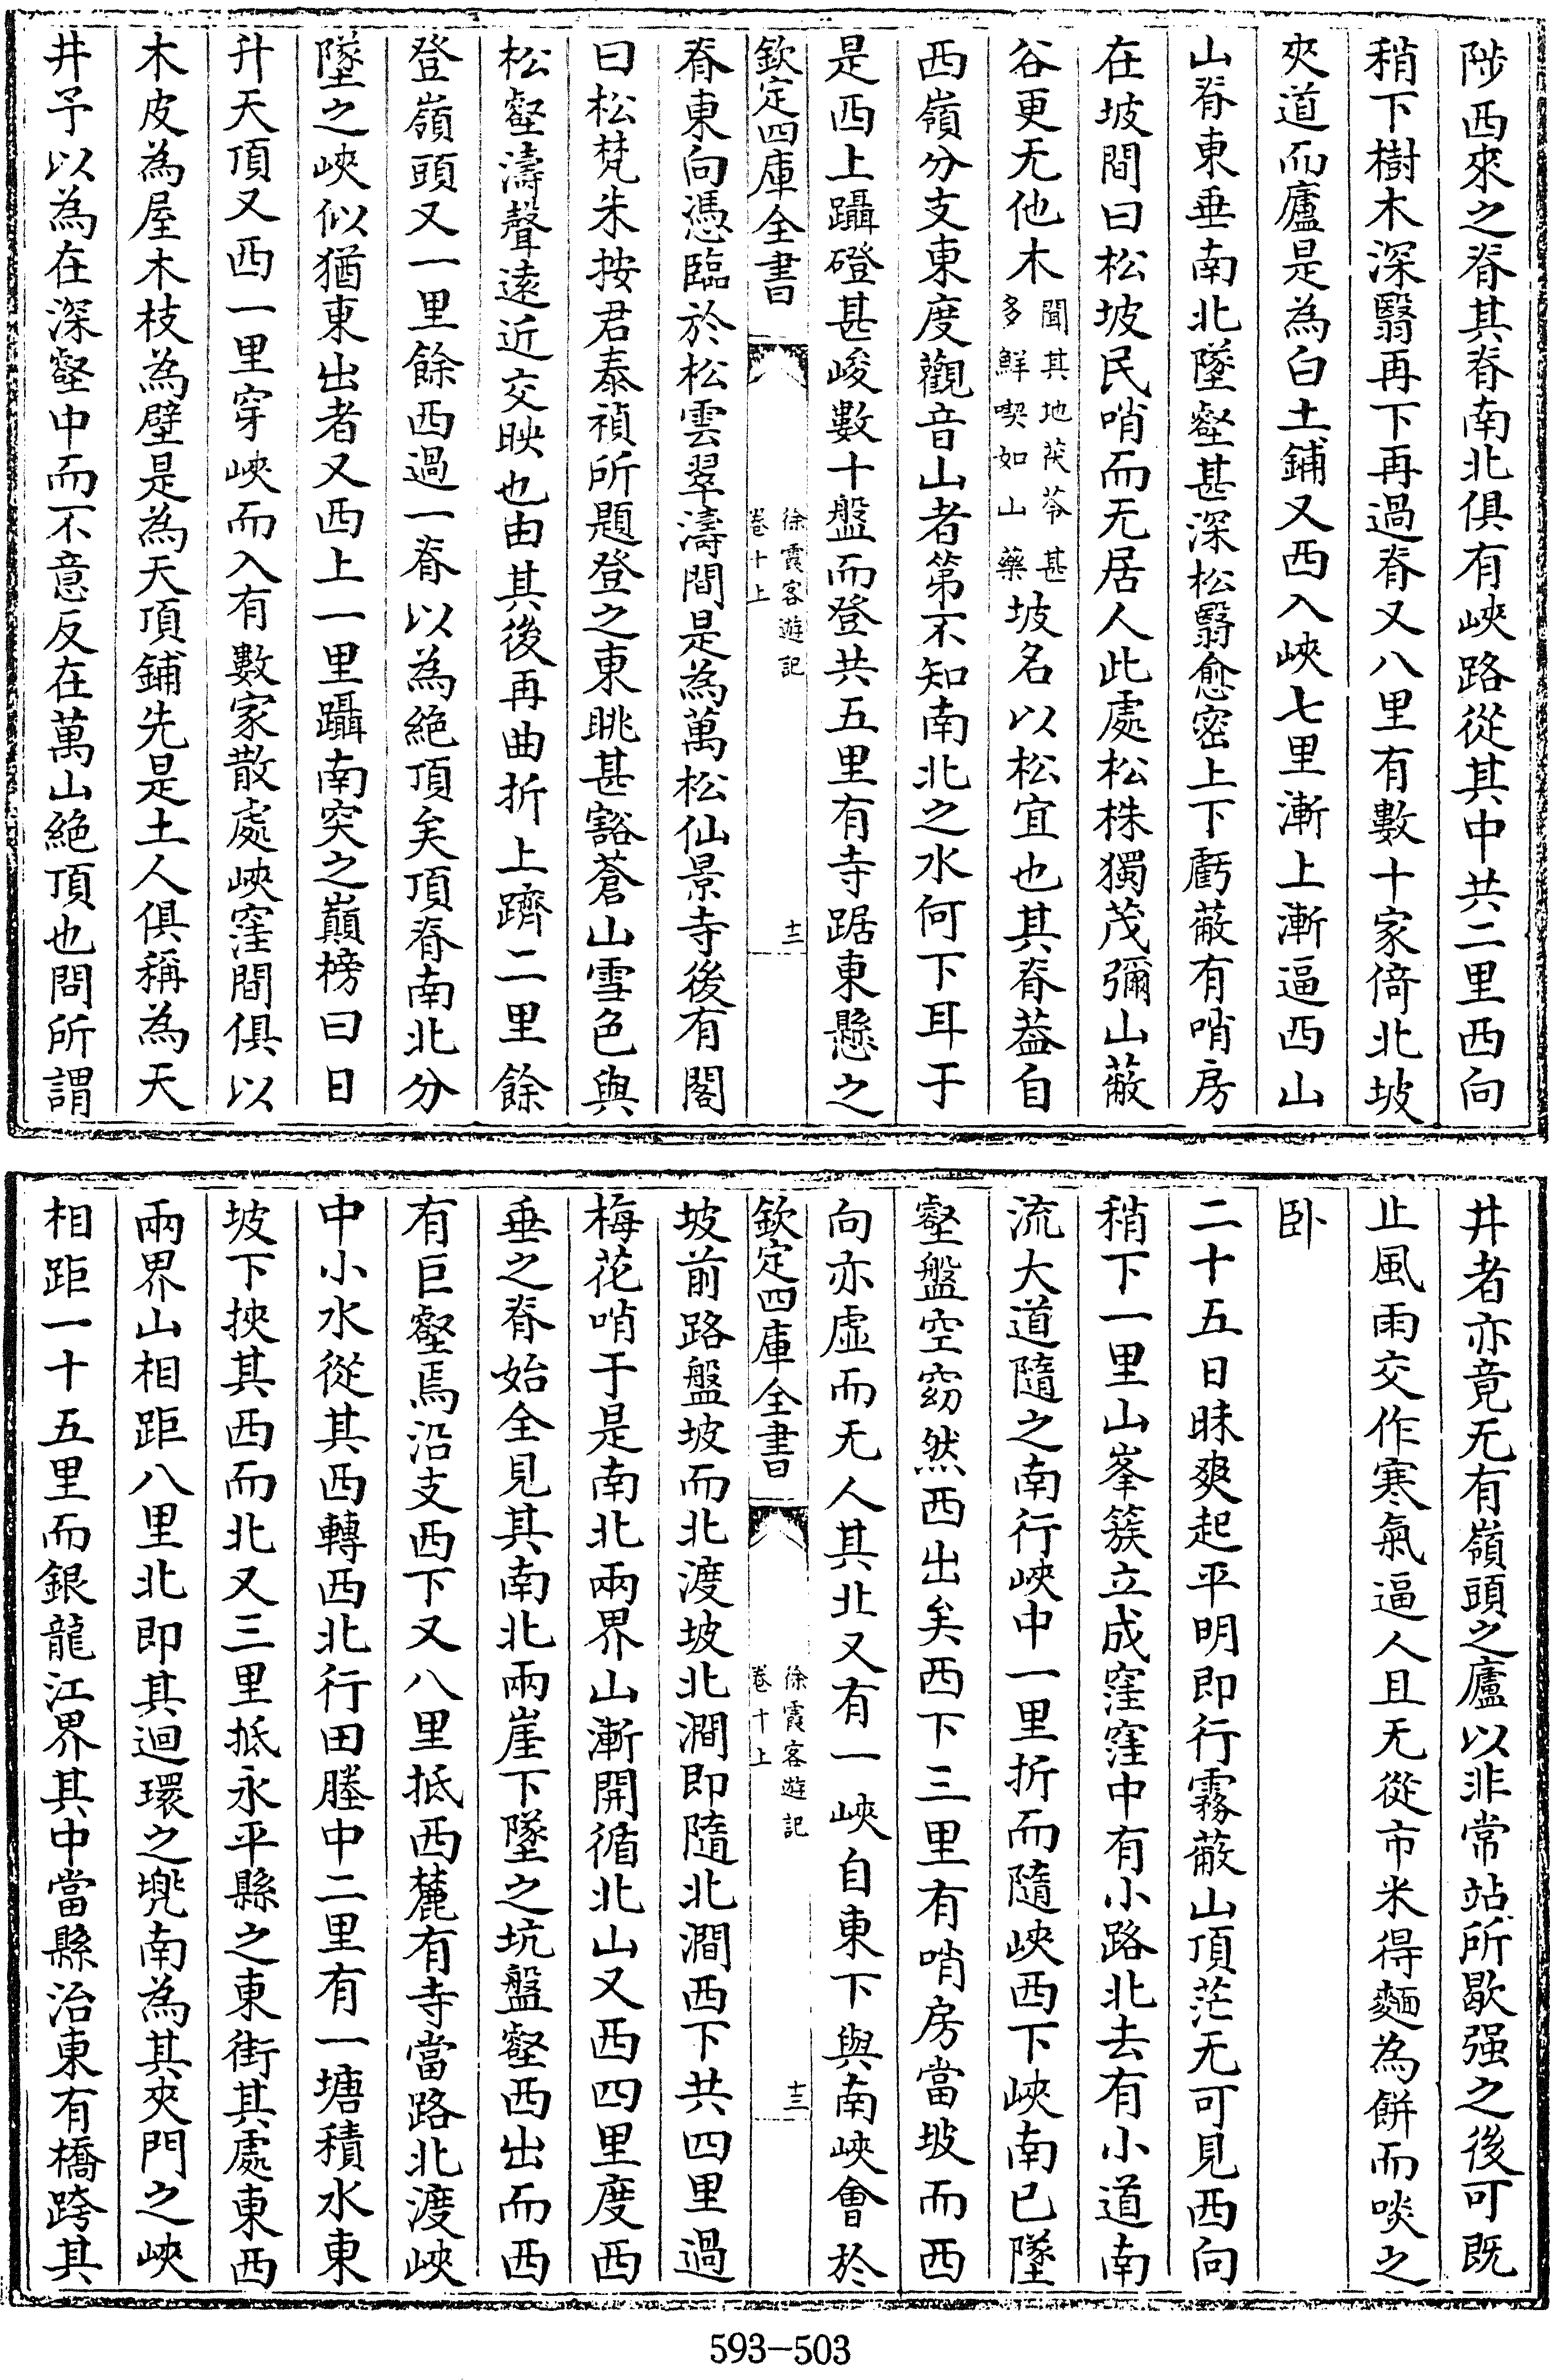 陟西來之脊其脊南北俱有峽路從其中共二里西向
稍下樹木深翳再下再過脊又八里有數十家倚北坡
夾道而廬是為白土鋪又西入峽七里漸上漸逼西山
山脊東垂南北墜壑甚深松翳愈密上下虧蔽有哨房
在坡間曰松坡民哨而无居人此處松株獨茂彌山蔽
谷更无他木聞其地茯苓甚多鮮喫如山藥坡名以松宜也其脊葢自
西嶺分支東度觀音山者第不知南北之水何下耳于
是西上躡磴甚峻數十盤而登共五里有寺踞東懸之
欽定四庫全書
徐霞客遊記
卷十上
十二
脊東向憑臨於松雲翠濤間是為萬松仙景寺後有閣
曰松梵朱按君泰禎所題登之東眺甚豁蒼山雪色與
松壑濤聲遠近交映也由其後再曲折上躋二里餘
登嶺頭又一里餘西過一脊以為絕頂矣頂脊南北分
墜之峽似猶東出者又西上一里躡南突之巔榜曰日
升天頂又西一里穿峽而入有數家散處峽窪間俱以
木皮為屋木枝為壁是為天頂鋪先是土人俱稱為天
井予以為在深壑中而不意反在萬山絕頂也問所謂
井者亦竟无有嶺頭之廬以非常站所歇强之後可既
止風雨交作寒氣逼人且无從市米得麵為餅而啖之
卧
二十五日昧爽起平明即行霧蔽山頂茫无可見西向
稍下一里山峯簇立成窪窪中有小路北去有小道南
流大道隨之南行峽中一里折而隨峽西下峽南已墜
壑盤空窈然西出矣西下三里有哨房當坡而西
向亦虛而无人其北又有一峽自東下與南峽會於
欽定四庫全書
徐霞客遊記
卷十上
十三
坡前路盤坡而北渡坡北澗即隨北澗西下共四里過
梅花哨于是南北兩界山漸開循北山又西四里度西
垂之脊始全見其南北兩崖下墜之坑盤壑西出而西
有巨壑焉沿支西下又八里抵西麓有寺當路北渡峽
中小水從其西轉西北行田塍中二里有一塘積水東
坡下挾其西而北又三里抵永平縣之東街其處東西
兩界山相距八里北即其迴環之兠南為其夾門之峽
相距一十五里而銀龍江界其中當縣治東有橋跨其
593-503